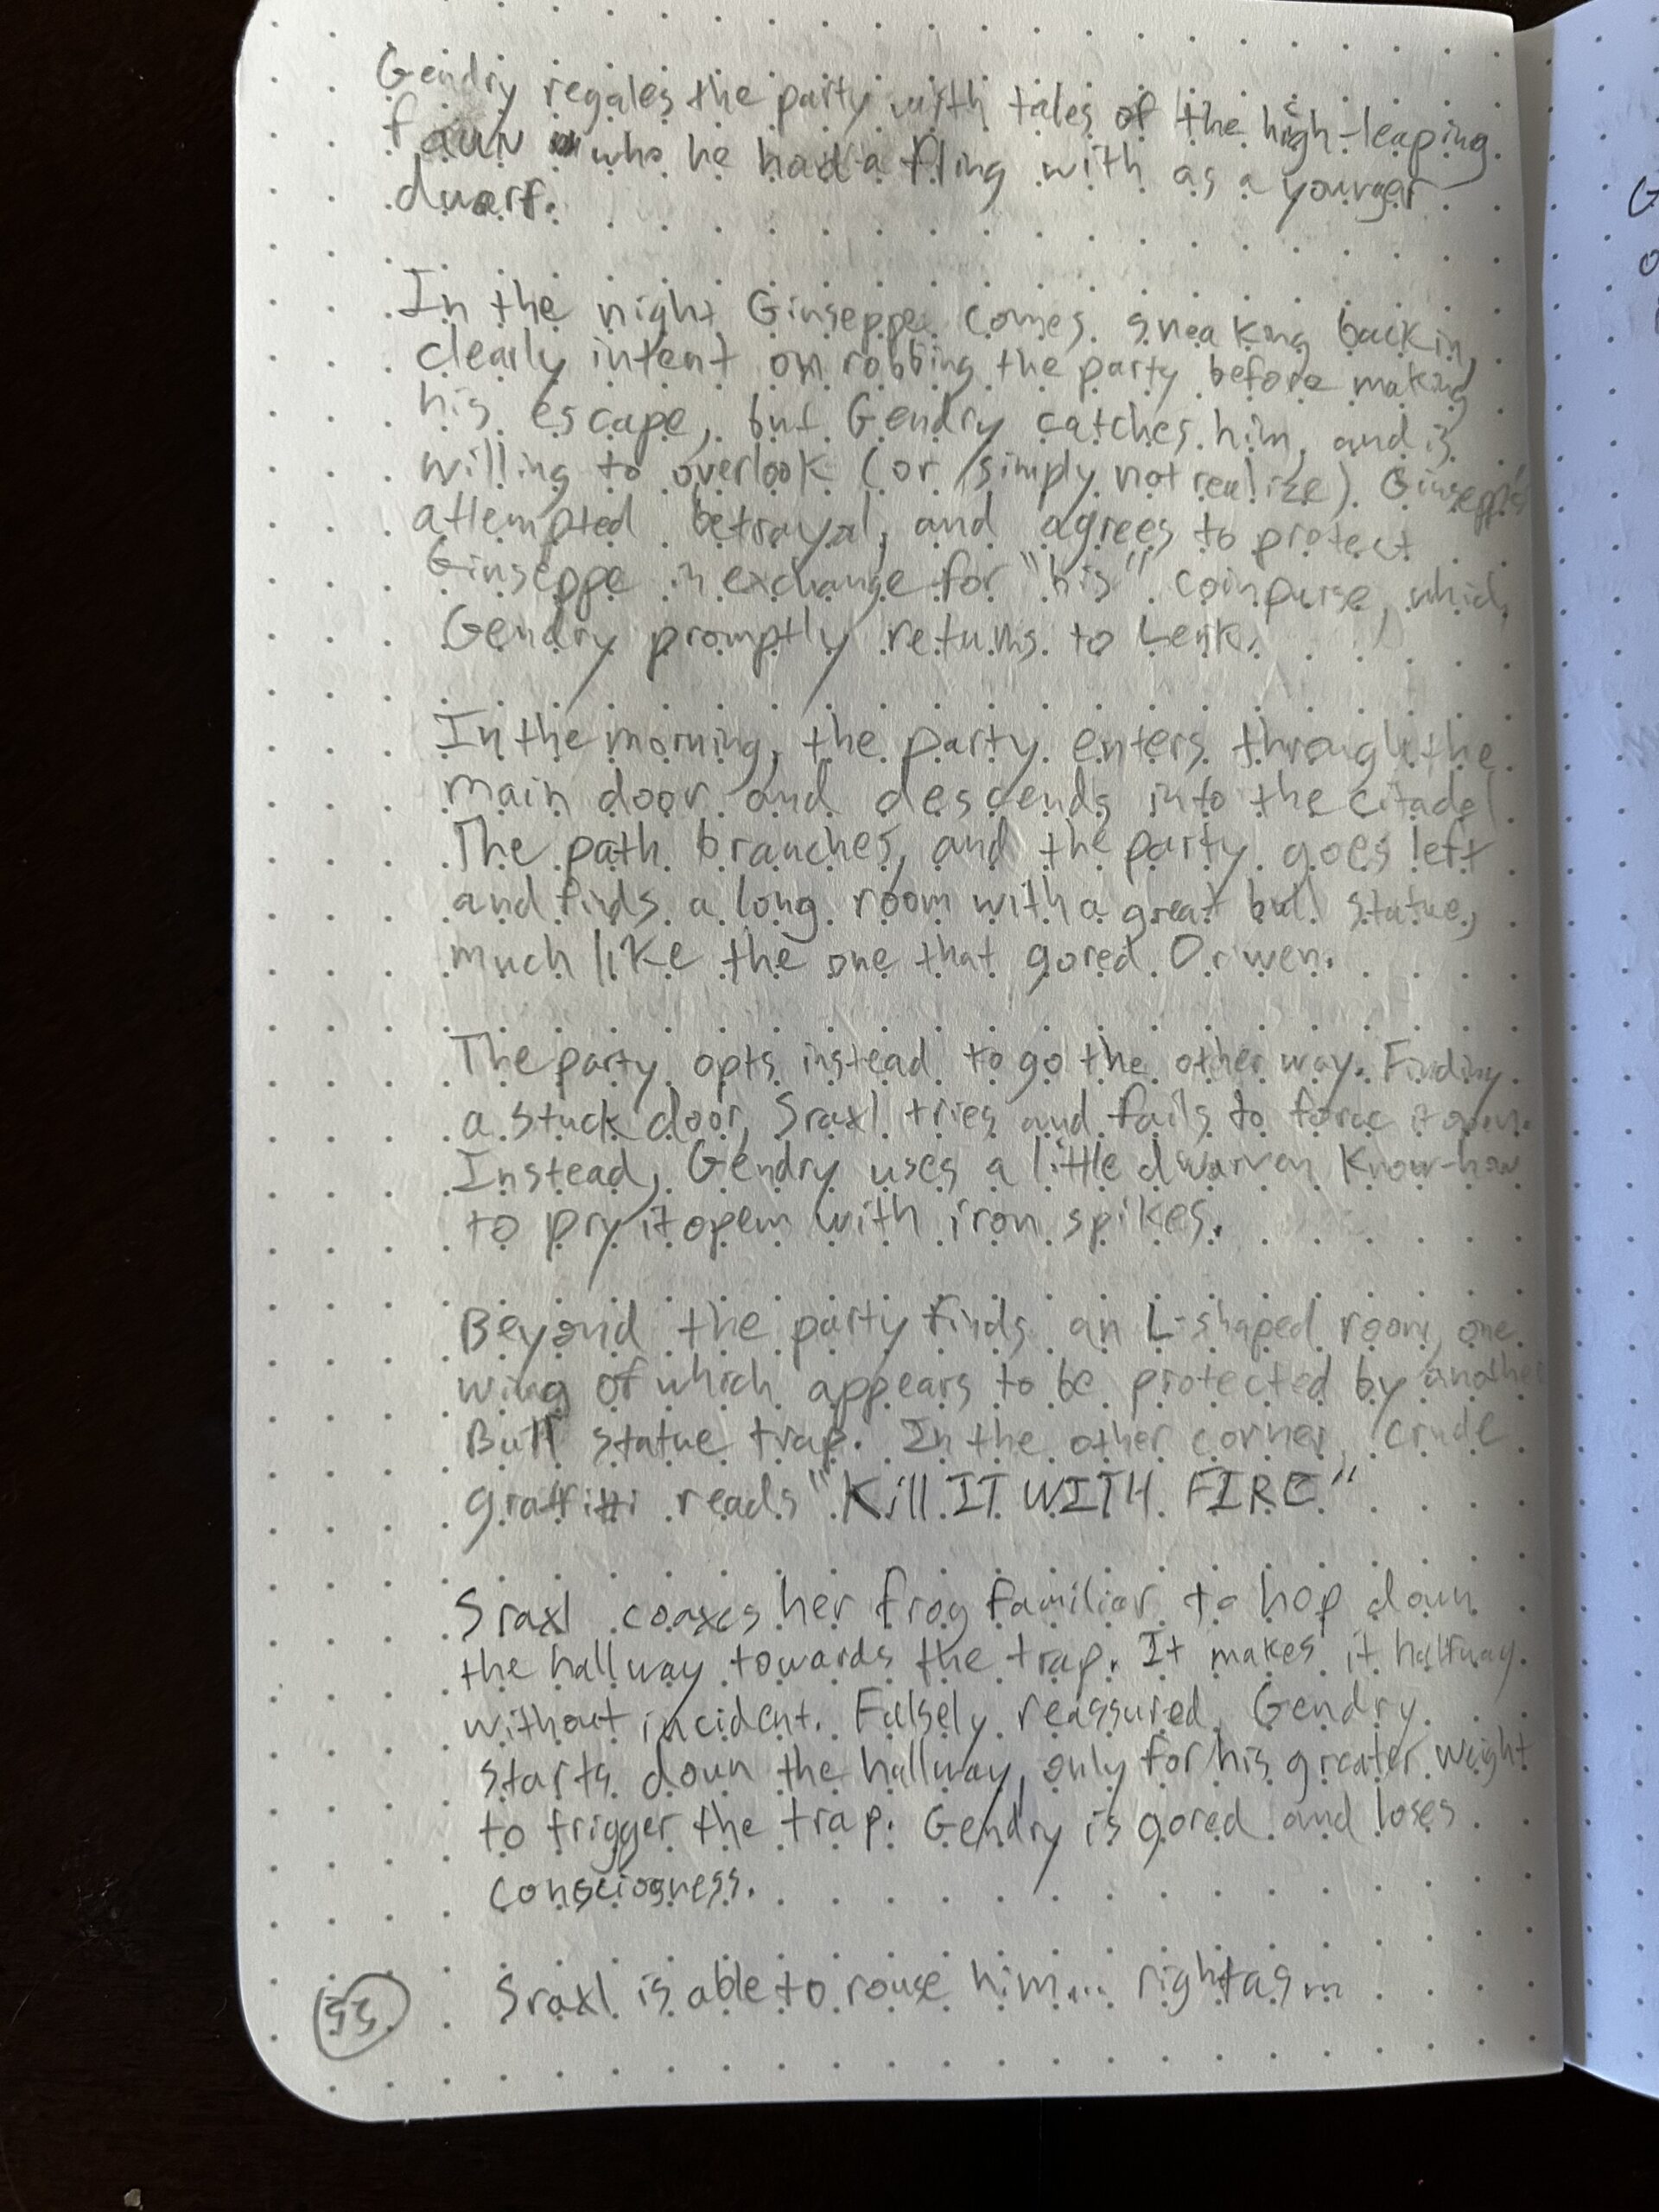 Gendry regales the party with tales of the high-leaping
faun who he had a fling with as a younger
dwarf.
In the night Giuseppe comes sneaking back in,
clearly intent on robbing the party before making
his escape, but Gendry catches him, and is
willing to overlook (or simply not realize) Giuseppe's
attempted betrayal, and agrees to protect
Giuseppe in exchange for "his" coinpurse, which
Gendry promptly returns to Lenk.
In the morning, the party enters through the
main door and descends into the citadel.
The path branches, and the party goes left
and finds a long room with a great bull statue,
much like the one that gored Orwen.
The party opts instead to go the other way. Finding
a stuck door, Sraxl tries and fails to force it open.
Instead, Gendry uses a little dwarven know-how
to pry it open with iron spikes.
Beyond the party finds an L-shaped room, one
wing of which appears to be protected by another
Bull statue trap. In the other corner, crude
graffitti reads "Kill IT WITH FIRE"
Sraxl coaxes her frog familiar to hop down
the hallway towards the trap. It makes it halfway
without incident. Falsely reassured, Gendry
starts down the hallway, only for his greater weight
to trigger the trap. Gendry is gored and loses
consciousness.
Sraxl is able to rouse him... right as...
55